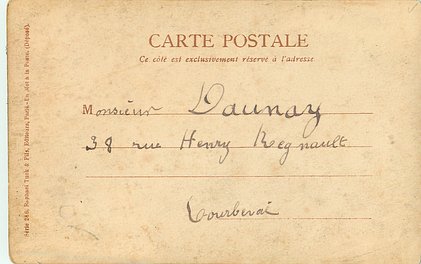 CARTE POSTALE
Ce côté est exclusivement réservé à l'adresse
Monsieur Daunay
38 rue Henry Regnault
Courbevoie
Série 246, Raphael Tuck & Fils, Editeurs, Paris.